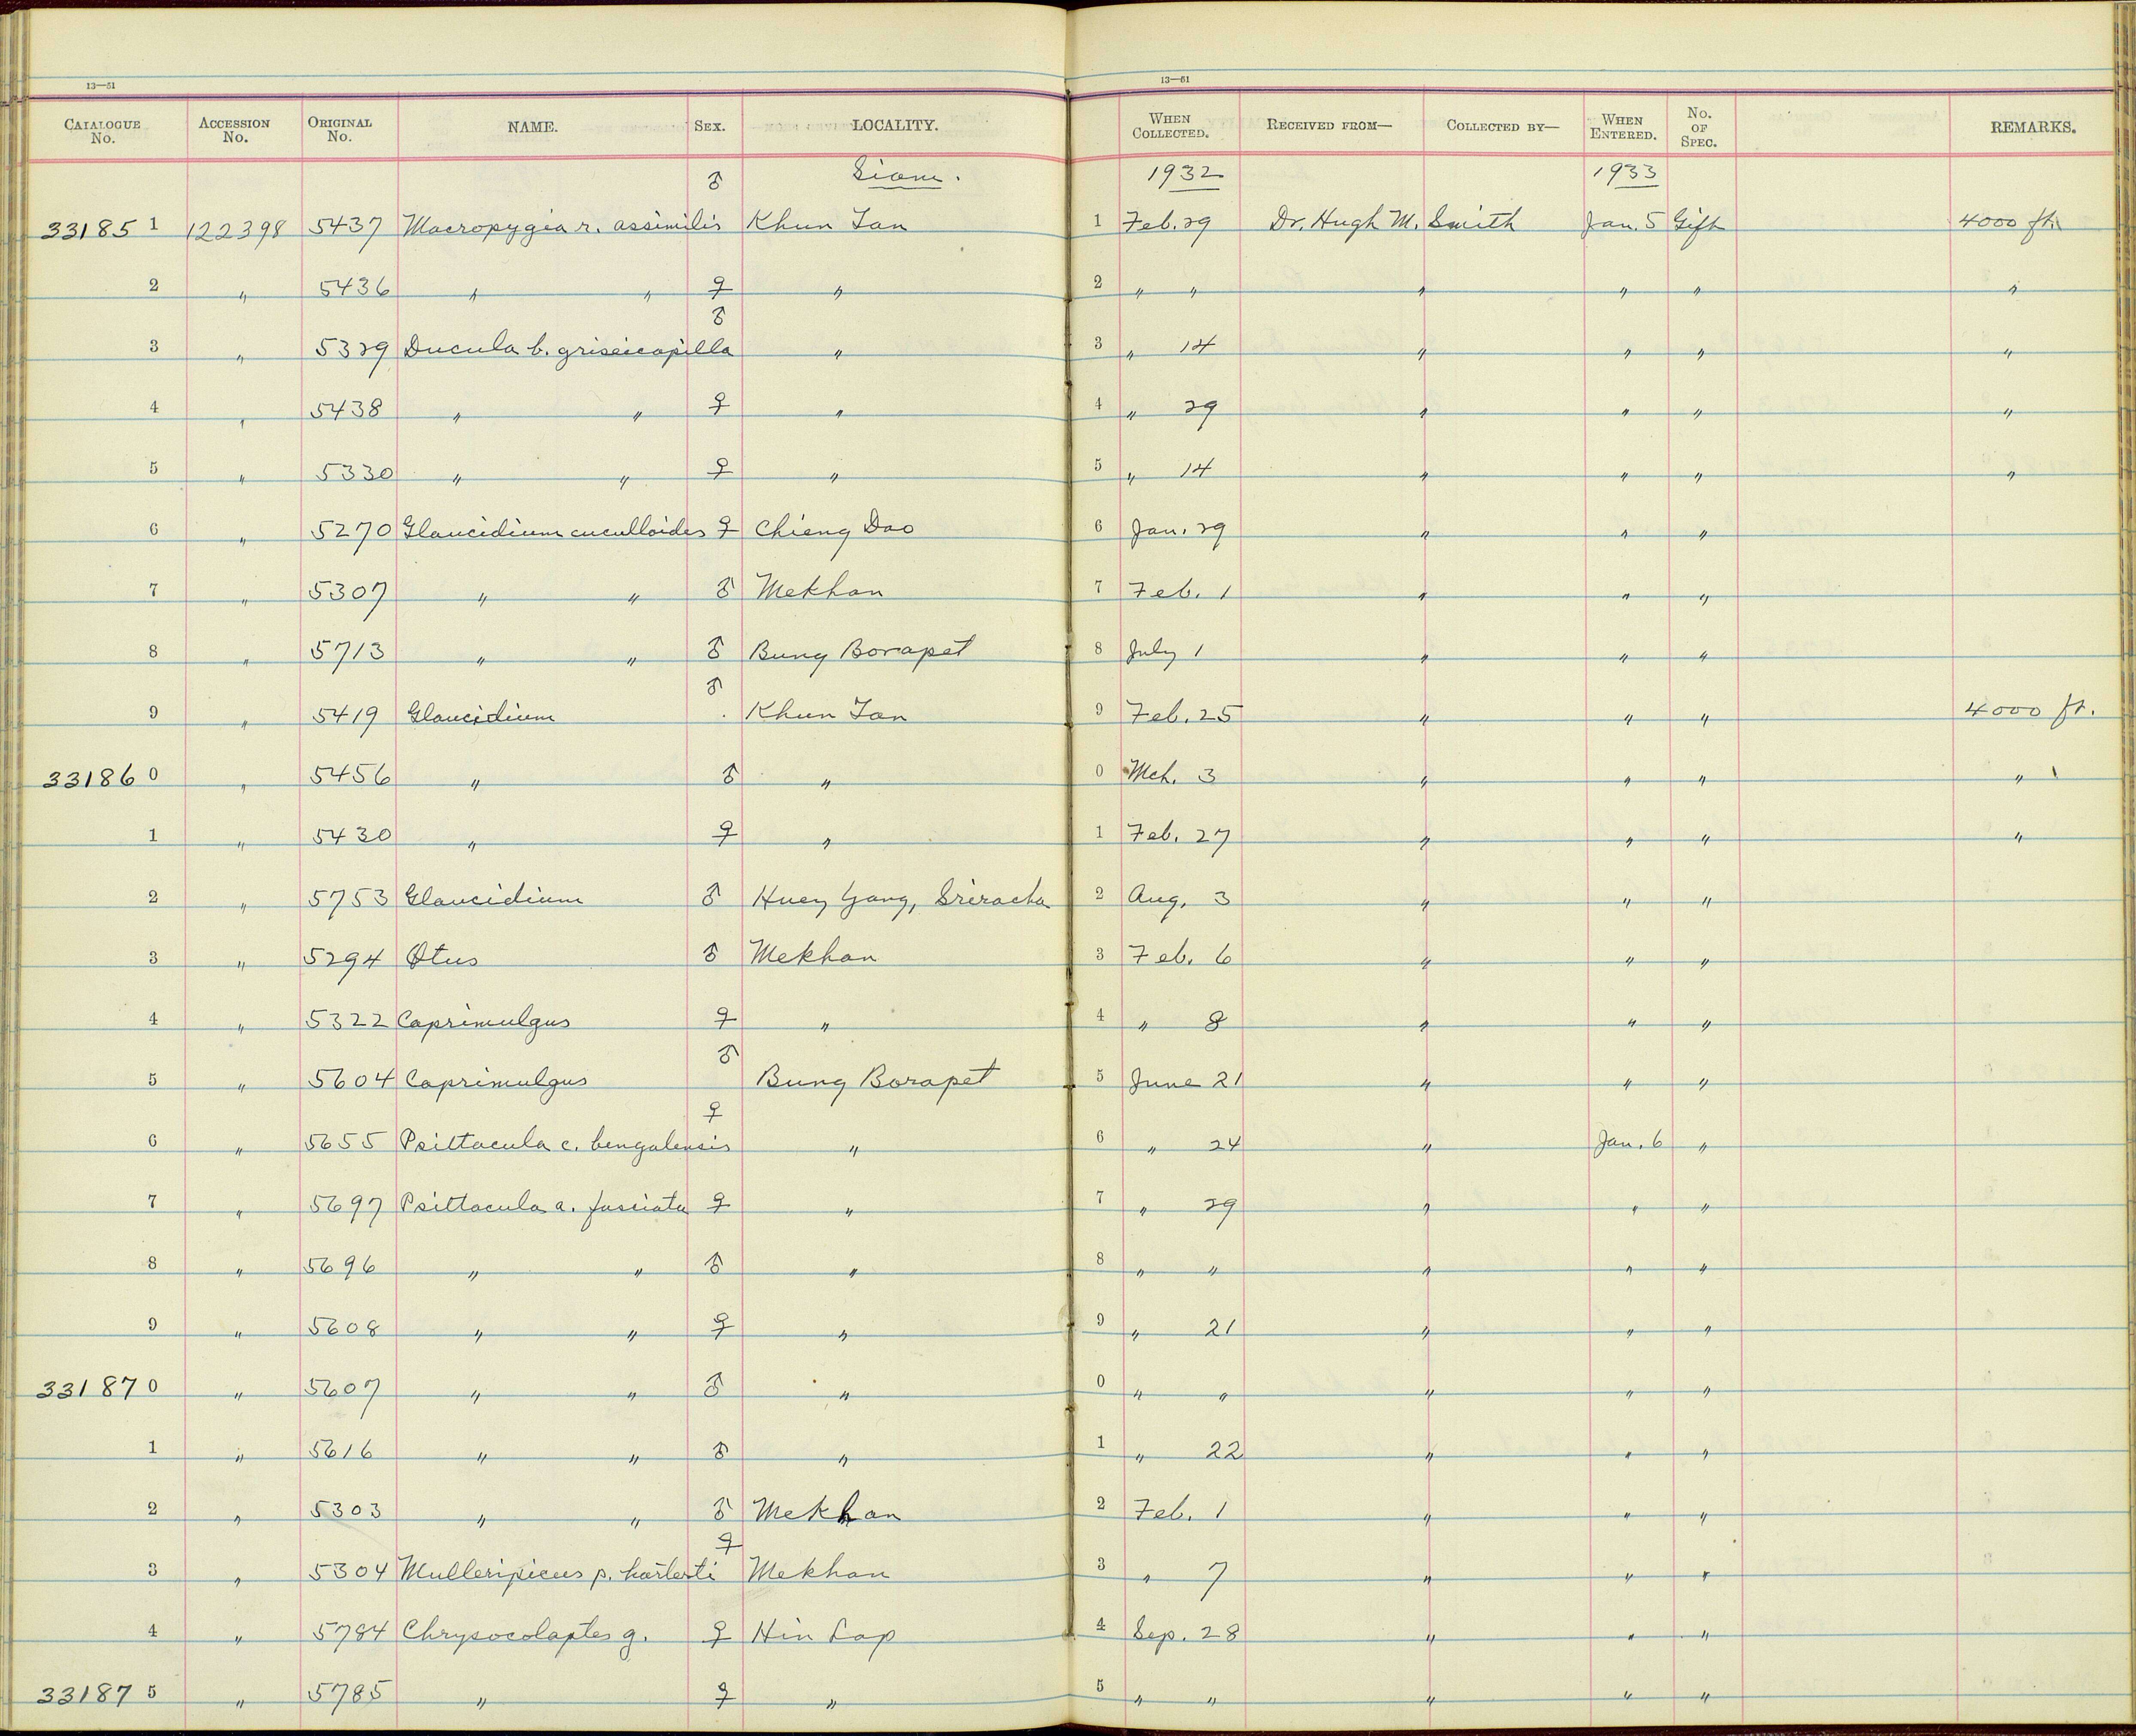 13—51 13—51
CATALOGUE No. ACCESSION No. ORIGINAL No. NAME. SEX. LOCALITY. WHEN COLLECTED. RECEIVED FROM— COLLECTED BY— WHEN ENTERED. No. OF SPEC. REMARKS.
Siam. 1932 1933
331851 122398 5437 Macropygia r. assimilis ♂ Khun Tan 1 Feb. 29 Dr. Hugh M. Smith Jan. 5 Gift 4000 ft.
2 " 5436 " " ♀ " 2 " " " " " "
3 " 5329 Ducula b. griseicapilla ♂ " 3 " 14 " " " "
4 " 5438 " " ♀ " 4 " 29 " " " "
5 " 5330 " " ♀ " 5 " 14 " " " "
6 " 5270 Glaucidium cuculloides ♀ Chieng Dao 6 Jan. 29 " " "
7 " 5307 " " ♂ Mekhan 7 Feb. 1 " " "
8 " 5713 " " ♂ Bung Borapet 8 July 1 " " "
9 " 5419 Glaucidium ♂ Khun Tan 9 Feb. 25 " " " 4000 ft.
331860 " 5456 " ♂ " 0 Mch. 3 " " " "
1 " 5430 " ♀ " 1 Feb. 27 " " " "
2 " 5753 Glaucidium ♂ Huey Yang, Sriracha 2 Aug. 3 " " "
3 " 5294 Otus ♂ Mekhan 3 Feb. 6 " " "
4 " 5322 Caprimulgus ♀ " 4 " 8 " " "
5 " 5604 Caprimulgus ♂ Bung Borapet 5 June 21 " " "
6 " 5655 Psittacula c. bengalensis ♀ " 6 " 24 " Jan. 6 "
7 " 5697 Psittacula a. fasciata ♀ " 7 " 29 " " "
8 " 5696 " " ♂ " 8 " " " " "
9 " 5608 " " ♀ " 9 " 21 " " "
331870 " 5607 " " ♂ " 0 " " " " "
1 " 5616 " " ♂ " 1 " 22 " " "
2 " 5303 " " ♂ Mekhan 2 Feb. 1 " " "
3 " 5304 Mulleripicus p. harterti ♀ Mekhan 3 " 7 " " "
4 " 5784 Chrysocolaptes g. ♀ Hin Lap 4 Sep. 28 " " "
331875 " 5785 " ♀ " 5 " " " " "